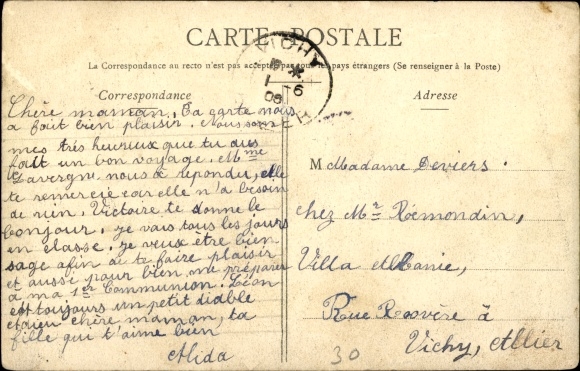 CARTE POSTALE
La Correspondance au recto n'est pas acceptée par tous les pays étrangers (Se renseigner à la Poste)
Correspondance
Adresse
VICHY
6
Chère maman, Ta carte nous
a fait bien plaisir. Nous som
mes très heureux que tu aies
fait un bon voyage. Mme
Lavergn nous a répondu, elle
te remercie car elle n'a besoin
de rien. Victoire te donne le
bonjour. Je vais tous les jours
en classe. Je veux être bien
sage afin de te faire plaisir
et aussi pour bien me préparer
à ma 1re Communion. Léon
est toujours un petit diable
Adieu chère maman, ta
fille qui t'aime bien
Alida
M Madame Deviers.
chez Mr Rémondin,
Villa Mélanie,
Rue à
Vichy, Allier
30